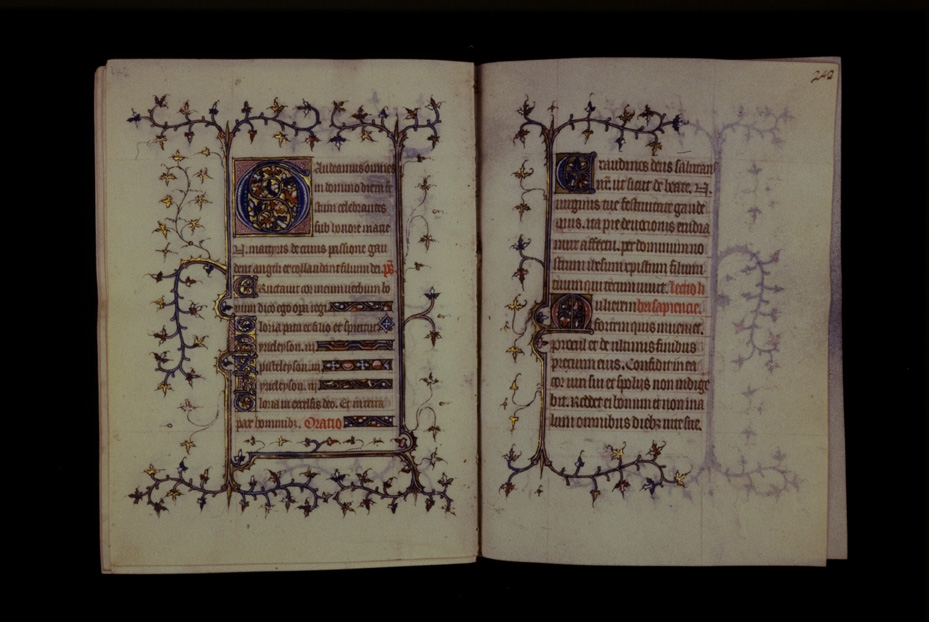 Gaudeamus omnes
in domino diem fe
stum celebrantes
sub honore marie
N. martyris de cuius passione gau
dent angeli et collaudant filium dei. ps
Eructavit cor meum verbum bo
num dico ego opera regi
Gloria patri et filio et spiritui
Kyrieleyson. iii
Christeleyson. iii
Kyrieleyson. iii
Gloria in excelsis deo. Et in terra
pax hominibz. Oratio
242
Exaudi nos deus salutaris
nr. ut sicut de beate. N.
virginis tue festivitate gaude
mus. ita pie devocionis erudia
mur affectu. per dominum no
strum ihesum xpistum filium
tuum qui tecum vivit. lectio li
Mulierem bri sapiencie.
fortem quis inveniet.
procul et de ultimis finibus
precium eius. Confidit in ea
cor viri sui et spoliis non indige
bit. Reddet ei bonum et non ma
lum omnibus diebz vite sue.